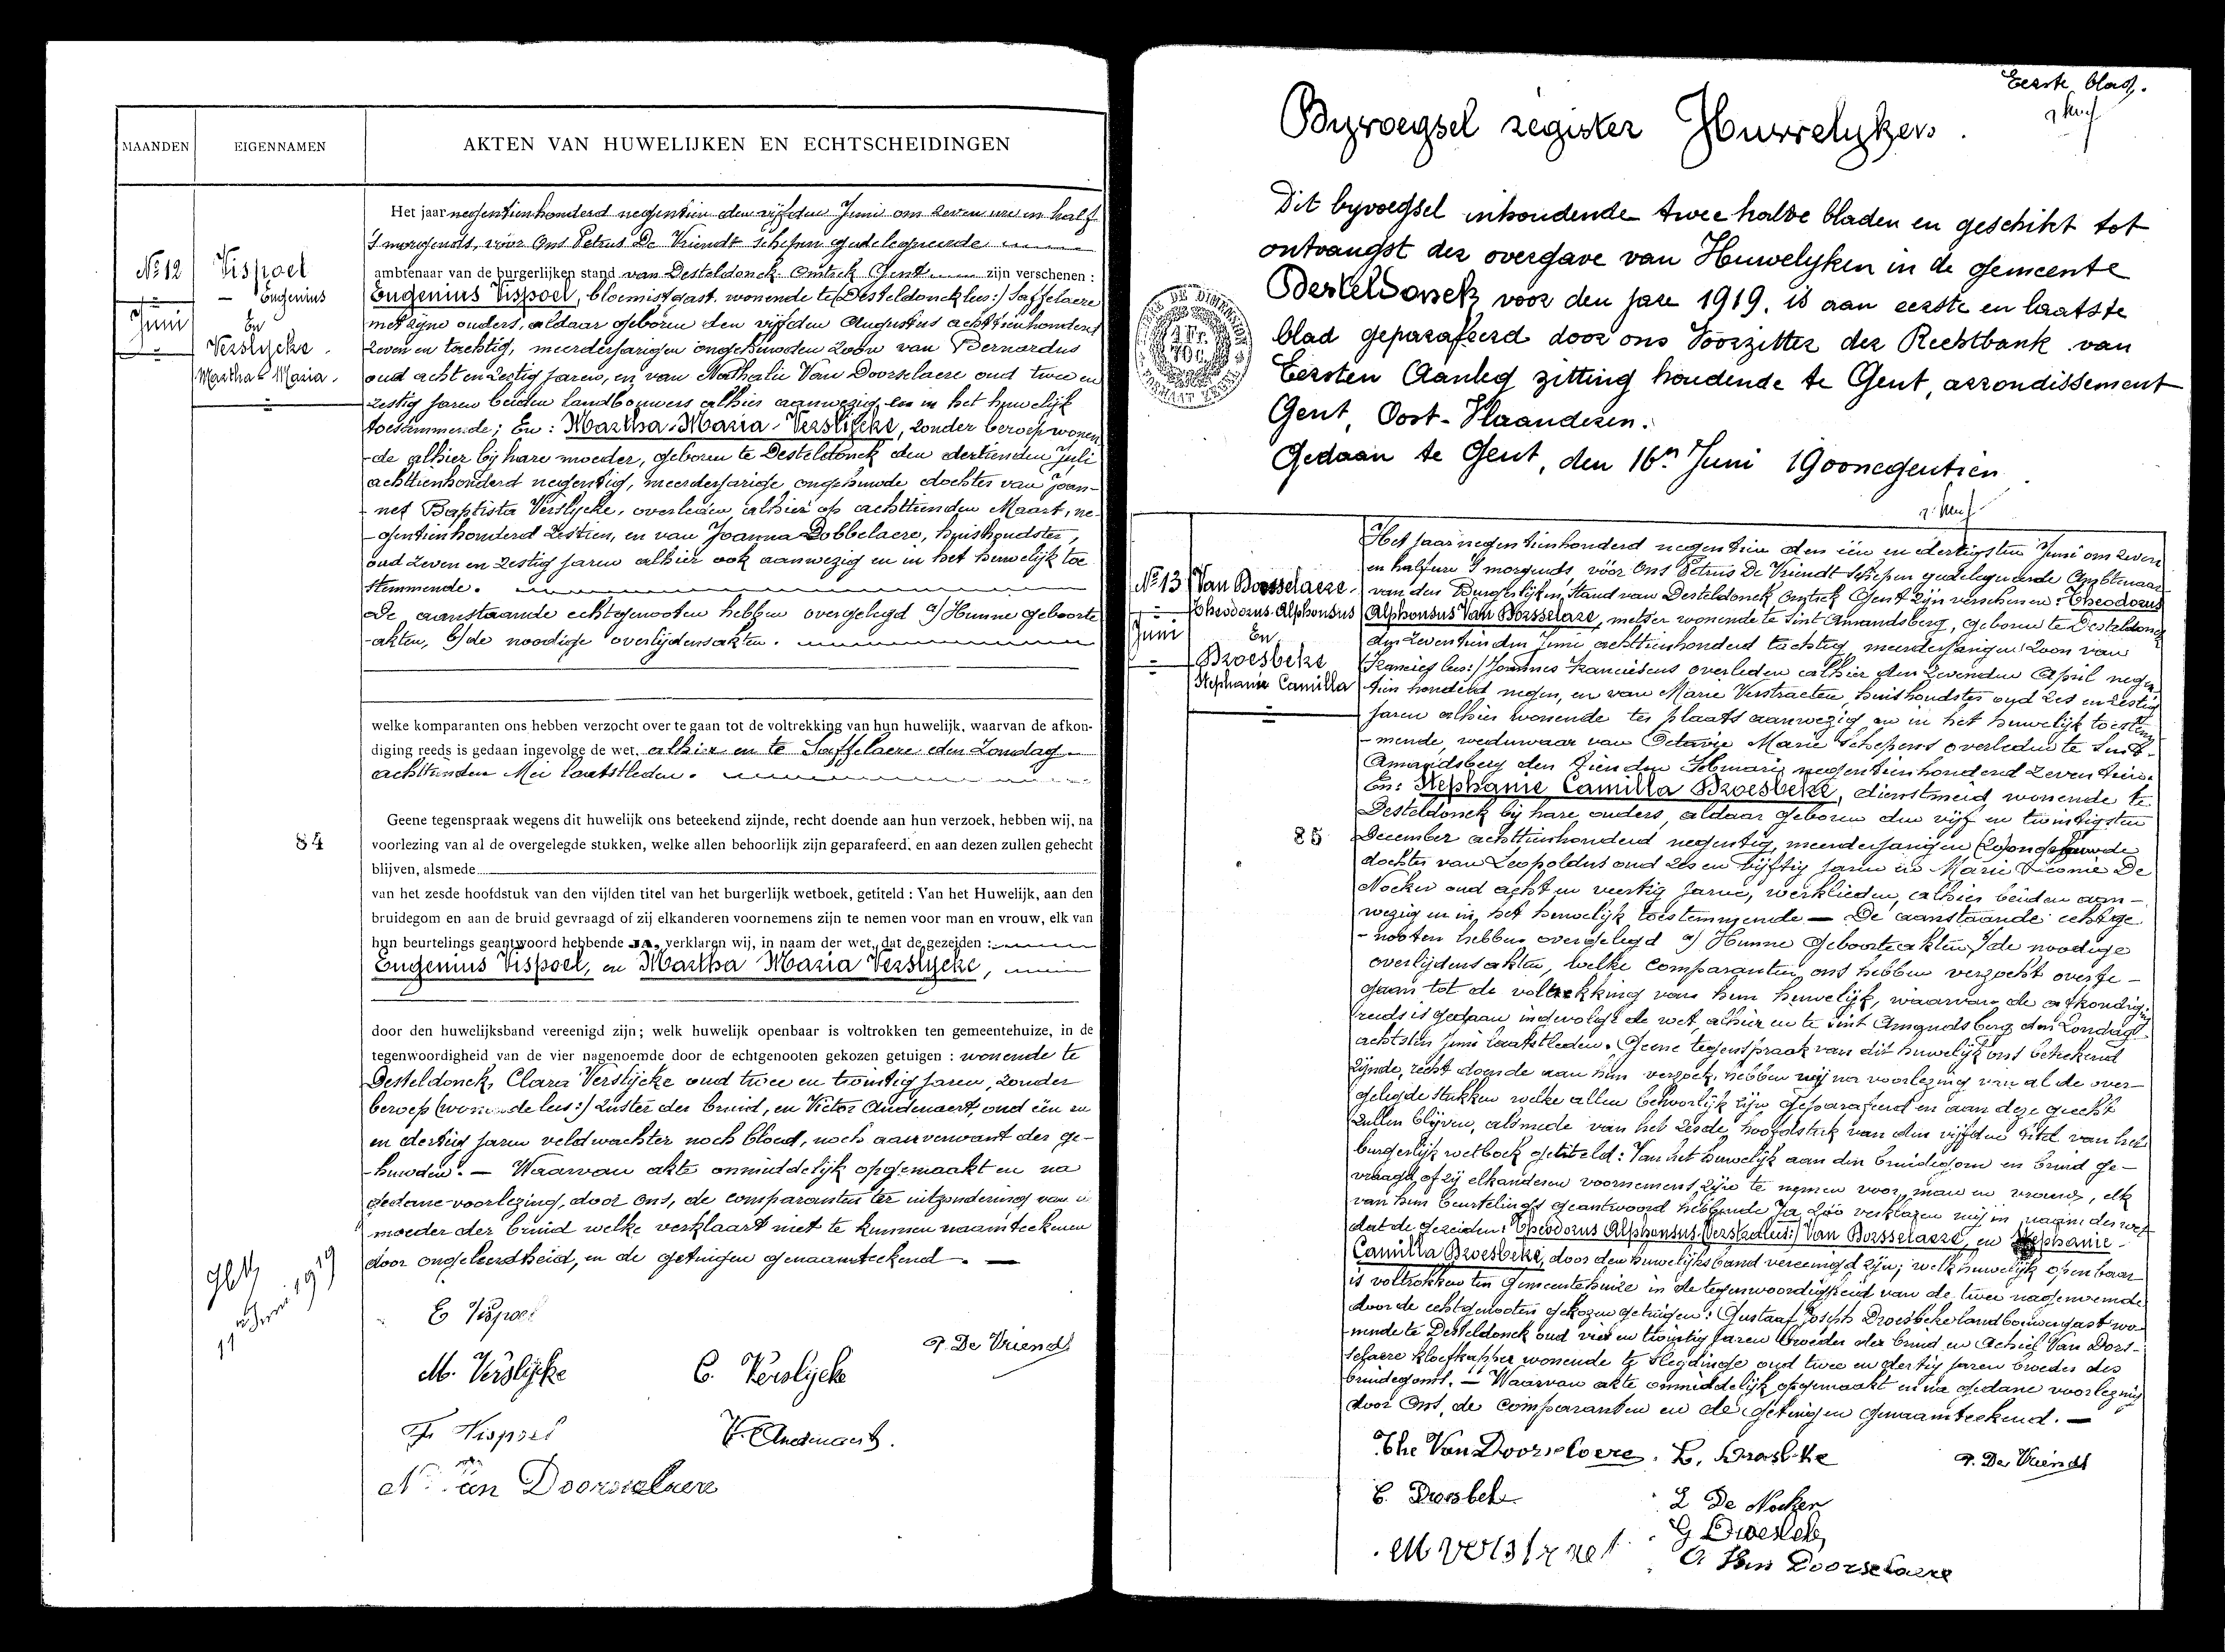 MAANDEN
EIGENNAMEN
AKTEN VAN HUWELIJKEN EN ECHTSCHEIDINGEN
№ 12
Juni
Vispoel
Eugenius
En
Verslycke
Martha-Maria.
Het jaar negentienhonderd negentien den vijfden Juni om zeven ure en half
's morgends, vóór Ons Petrus De Vriendt schepen gedelegueerde
ambtenaar van de burgerlijken stand van Desteldonck Omtrek Gent zijn verschenen :
Eugenius Vispoel, bloemist gast, wonende te (Desteldonck lees:) Saffelaere
met zyne ouders, aldaar geboren den vijfden Augustus achttienhonderd
zeven en tachtig, meerderjarigen ongehuwden zoon van Bernardus
oud acht en zestig jaren, en van Nathalie Van Doorselaere oud twee en
zestig jaren beiden landbouwers alhier aanwezig en in het huwelijk
toestemmende; En : Martha-Maria-Verslycke, zonder beroep wonen
-de alhier bij hare moeder, geboren te Desteldonck den dertienden Juli
achttienhonderd negentig, meerderjarige ongehuwde dochter van Joan-
-nes Baptista Verslycke, overleden alhier op achttienden Maart, ne-
-gentienhonderd zestien, en van Joanna Dobbelaere, huishoudster,
oud zeven en zestig jaren alhier ook aanwezig en in het huwelijk toe
stemmende.
De aanstaande echtgenooten hebben overgelegd a/ Hunne geboorte
-akten, b/ de noodige overlijdensakten.
welke komparanten ons hebben verzocht over te gaan tot de voltrekking van hun huwelijk, waarvan de afkon-
diging reeds is gedaan ingevolge de wet, alhier en te Saffelaere den Zondag
achttienden Mei laatstleden.
84
Geene tegenspraak wegens dit huwelijk ons beteekend zijnde, recht doende aan hun verzoek, hebben wij, na
voorlezing van al de overgelegde stukken, welke allen behoorlijk zijn geparafeerd, en aan dezen zullen gehecht
blijven, alsmede
van het zesde hoofdstuk van den vijfden titel van het burgerlijk wetboek, getiteld : Van het Huwelijk, aan den
bruidegom en aan de bruid gevraagd of zij elkanderen voornemens zijn te nemen voor man en vrouw, elk van
hun beurtelings geantwoord hebbende JA, verklaren wij, in naam der wet, dat de gezeiden :
Eugenius Vispoel, en Martha Maria Verslycke,
door den huwelijksband vereenigd zijn; welk huwelijk openbaar is voltrokken ten gemeentehuize, in de
tegenwoordigheid van de vier nagenoemde door de echtgenooten gekozen getuigen : wonende te
Desteldonck, Clara Verslijcke oud twee en twintig jaren, zonder
beroep (wonende lees:) zuster der bruid, en Victor Audenaert, oud één en
en dertig jaren veldwachter noch bloed, noch aanverwant der ge-
-huwden. — Waarvan akte onmiddelijk opgemaakt en na
gedane voorlezing, door ons, de comparanten ter uitzondering van de
moeder der bruid welke verklaart niet te kunnen naamteekenen
door ongeleerdheid, en de getuigen genaamteekend. —
11 Juni 1919
E Vispoel
P. De Vriendt
M. Verslijcke
C. Verslijcke
Vispoel
V. Audenaert.
N. Van Doorselaere
Eerste blad.
Byvoegsel register Huwelyken.
Dit byvoegsel inhoudende twee halve bladen en geschikt tot
ontvangst der overgave van Huwelyken in de gemeente
Desteldonck voor den jare 1919, is aan eerste en laatste
blad geparafeerd door ons Voorzitter der Rechtbank van
Eersten Aanleg zitting houdende te Gent, arrondissement
Gent, Oost-Vlaanderen.
Gedaan te Gent, den 16n Juni 1900negentien
TIMBRE DE DIMENSION
1 Fr.
70 C.
FORMAAT ZEGEL
№ 13
Juni
Van Dorsselaere.
Theodorus-Alphonsus
En
Droesbeke
Stephanie Camilla
Het jaar negentienhonderd negentien den één en dertigsten Juni om zeven
en half ure 's morgends, vóór Ons Petrus De Vriendt Schepen gedelegueerde Ambtenaar
van den Burgerlijken Stand van Desteldonck Omtrek Gent zijn verschenen: Theodorus
Alphonsus Van Dorsselare, metser wonende te Sint Amandsberg, geboren te Desteldonck
den zeventienden Juni achttienhonderd tachtig, meerderjarigen zoon van
(Francies lees:) Joannes Franciscus overleden alhier den zevenden April negen-
tien honderd negen, en van Marie Verstraeten, huishoudster oud zes en zestig
jaren alhier wonende ter plaats aanwezig en in het huwelijk toestem
-mende, weduwaar van Octavie Marie Schepens overleden te Sint-
Amandsberg den tienden Februari negentienhonderd zeventien.
En: Stephanie Camilla Droesbeke, dienstmeid wonende te
Desteldonck bij hare ouders, aldaar geboren den vijf en twintigsten
December achttienhonderd negentig, meerderjarigen (zo) ongehuwde
dochter van Leopoldus oud zes en vijftig jaren en Marie Leonie De
Nocker oud acht en veertig jaren, werklieden, alhier beiden aan-
wezig en in het huwelijk toestemmende — De aanstaande echtge
-nooten hebben overgelegd a/ Hunne geboorteakten, b/ de noodige
overlijdensakten, welke comparanten ons hebben verzocht over te
gaan tot de voltrekking van hun huwelijk, waarvan de afkondiging
reeds is gedaan ingevolge de wet, alhier en te Sint Amandsberg den Zondag
achtsten Juni laatstleden. Geene tegenspraak van dit huwelijk ons beteekend
zijnde, recht doende aan hun verzoek, hebben wij na voorlezing van al de over-
gelegde stukken welke allen behoorlijk zijn geparafeerd en aan deze gehecht
zullen blijven, alsmede van het zesde hoofdstuk van den vijfden titel van het
burgerlijk wetboek getiteld: Van het huwelijk aan den bruidegom en bruid ge-
vraagd of zij elkanderen voornemens zijn te nemen voor man en vrouw, elk
van hun beurtelings geantwoord hebbende Ja, zoo verklaren wij in naam der wet
dat de gezeiden: Theodorus Alphonsus (Verstra lees:) Van Dorsselaere, en Stephanie-
Camilla Droesbeke, door den huwelijksband vereenigd zijn; welk huwelijk openbaar
is voltrokken ten Gemeentehuize in de tegenwoordigheid van de twee nagenoemde
door de echtgenooten gekozen getuigen: Gustaaf Joseph Droesbeke landbouwersgast wo-
nende te Desteldonck oud vier en twintig jaren broeder der bruid en Achiel Van Dors-
selaere kloefkapper wonende te Sleydinge oud twee en dertig jaren broeder des
bruidegoms. — Waarvan akte onmiddelijk opgemaakt en na gedane voorlezing
door Ons, de comparanten en de getuigen genaamteekend. —
85
The Van Doorselaere.
L. Droesbeke
P. De Vriendt
C. Droesbeke
L De Nocker
G Droesbeke
M verstraet
A Van Doorselaere